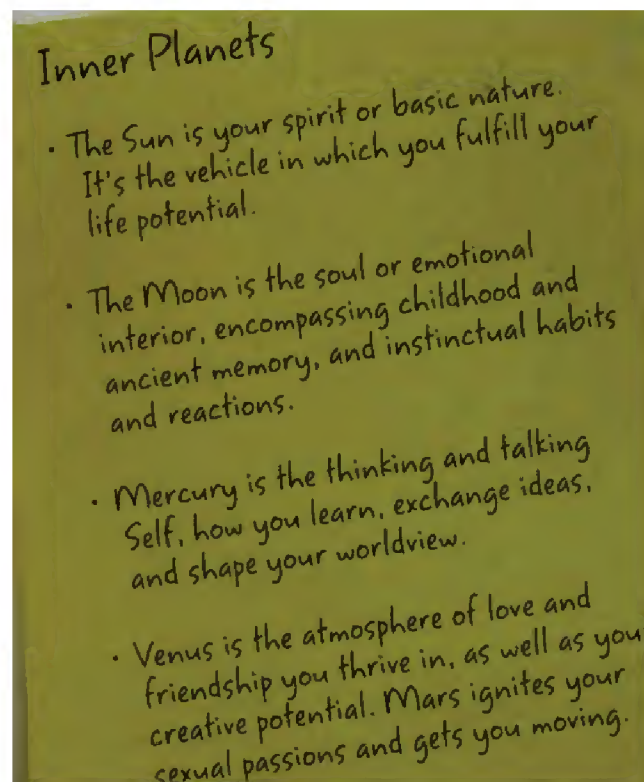 Inner Planets
· The Sun is your spirit or basic nature.
It's the vehicle in which you fulfill your
life potential.
· The Moon is the soul or emotional
interior, encompassing childhood and
ancient memory, and instinctual habits
and reactions.
· Mercury is the thinking and talking
Self, how you learn, exchange ideas,
and shape your worldview.
· Venus is the atmosphere of love and
friendship you thrive in, as well as you
creative potential. Mars ignites your
sexual passions and gets you moving.